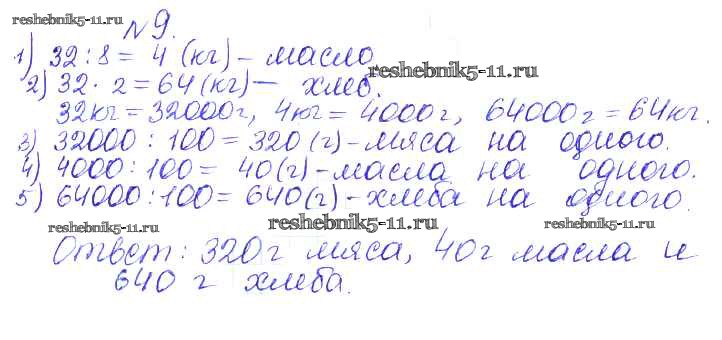 reshebnik5-11.ru
№9.
1) 32 : 8 = 4 (кг) – масло
reshebnik5-11.ru
2) 32 · 2 = 64 (кг) – хлеб.
32кг = 32000г, 4кг = 4000г, 64000г = 64кг.
3) 32000 : 100 = 320 (г) - мяса на одного.
4) 4000 : 100 = 40 (г) - масла на одного.
5) 64000 : 100 = 640 (г) - хлеба на одного.
reshebnik5-11.ru reshebnik5-11.ru reshebnik5-11.ru
Ответ: 320г мяса, 40г масла и
640 г хлеба.